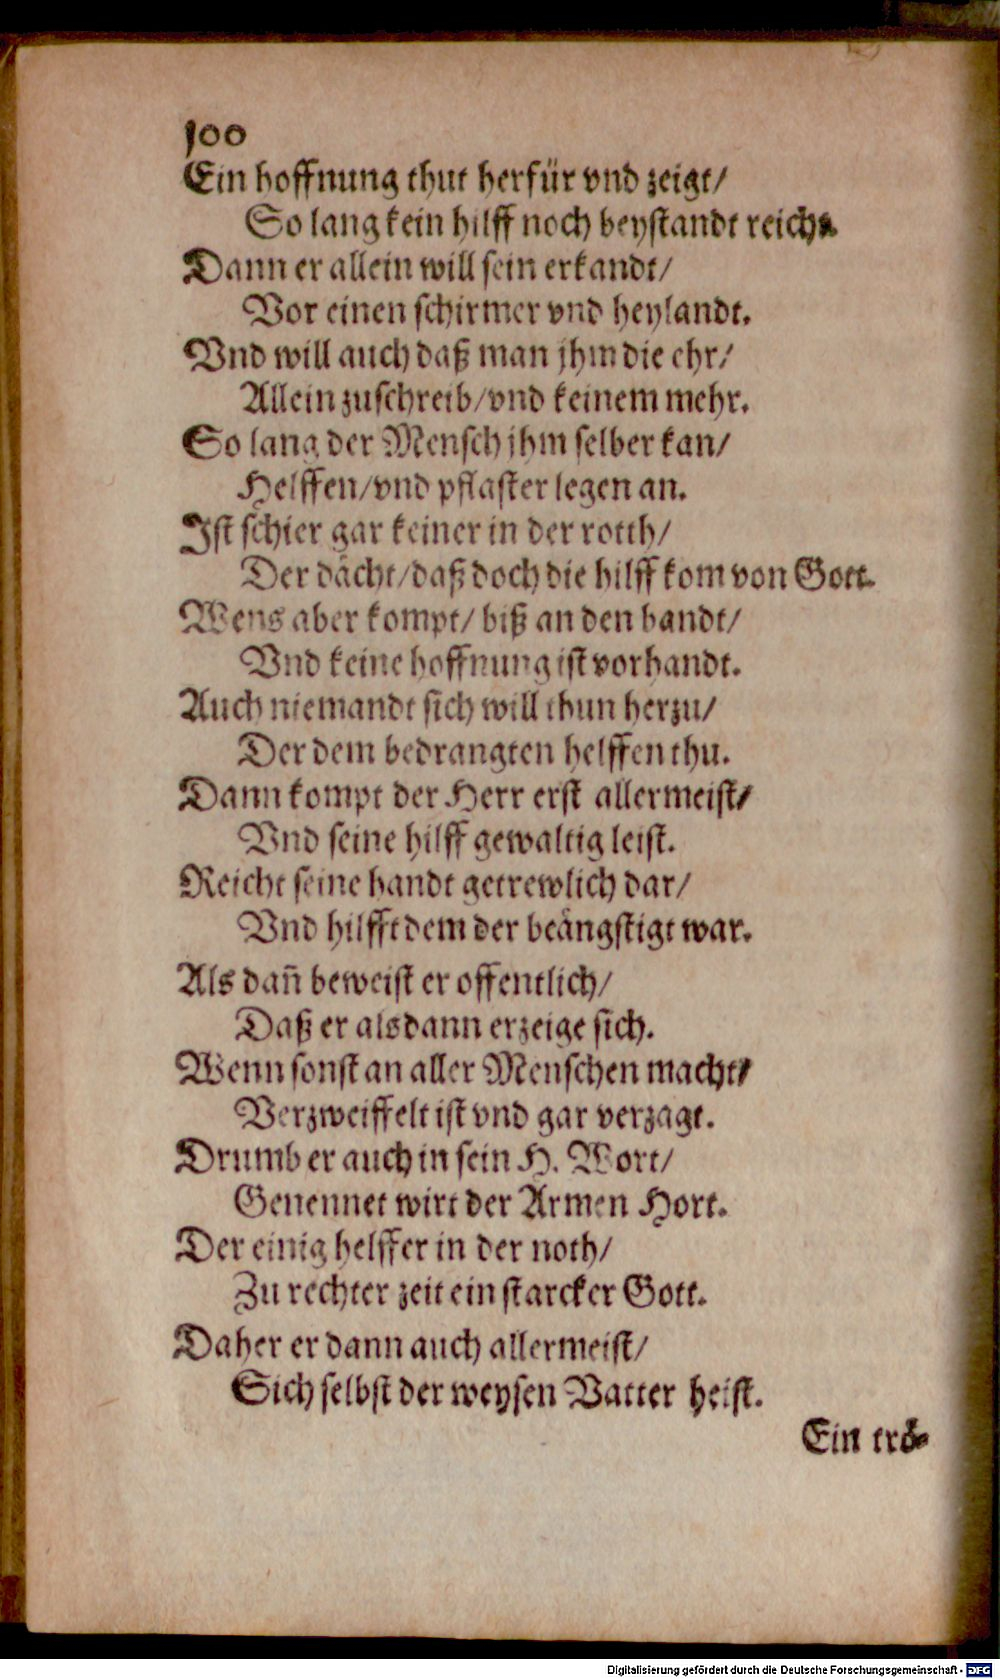 100
Ein hoffnung thut herfür vnd zeigt/
So lang kein hilff noch beystandt reicht.
Dann er allein will sein erkandt/
Vor einen schirmer vnd heylandt.
Vnd will auch daß man jhm die ehr/
Allein zuschreib/vnd keinem mehr.
So lang der Mensch jhm selber kan/
Helffen/vnd pflaster legen an.
Ist schier gar keiner in der rotth/
Der dächt/daß doch die hilff kom von Gott.
Wens aber kompt/ biß an den bandt/
Vnd keine hoffnung ist vorhandt.
Auch niemandt sich will thun herzu/
Der dem bedrangten helffen thu.
Dann kompt der Herr erst allermeist/
Vnd seine hilff gewaltig leist.
Reicht seine handt getrewlich dar/
Vnd hilfft dem der beängstigt war.
Als dañ beweist er offentlich/
Daß er alsdann erzeige sich.
Wenn sonst an aller Menschen macht/
Verzweiffelt ist vnd gar verzagt.
Drumb er auch in sein H. Wort/
Genennet wirt der Armen Hort.
Der einig helffer in der noth/
Zu rechter zeit ein starcker Gott.
Daher er dann auch allermeist/
Sich selbst der weysen Vatter heist.
Ein trö-
Digitalisierung gefördert durch die Deutsche Forschungsgemeinschaft - DFG